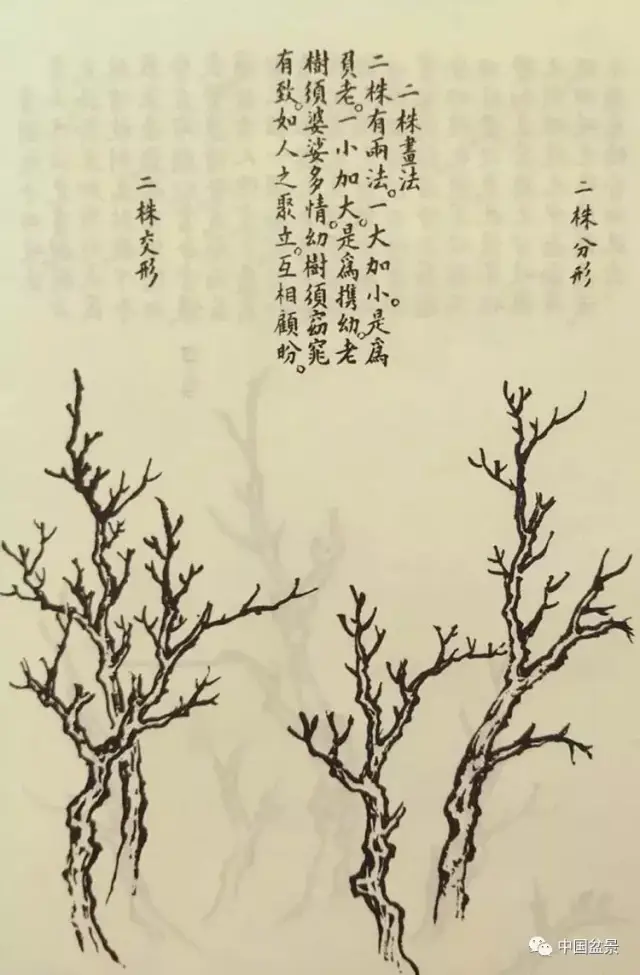 二株分形
二株畫法
二株有兩法。一大加小。是爲
負老。一小加大。是爲携幼。老
樹須婆娑多情。幼樹須窈窕
有致。如人之聚立。互相顧盼。
二株交形
中国盆景